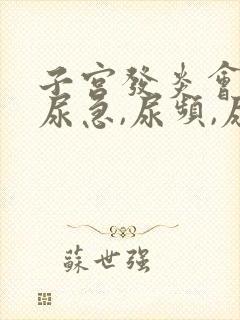 子宮發炎會
尿急,尿頻,尿
蘇世强